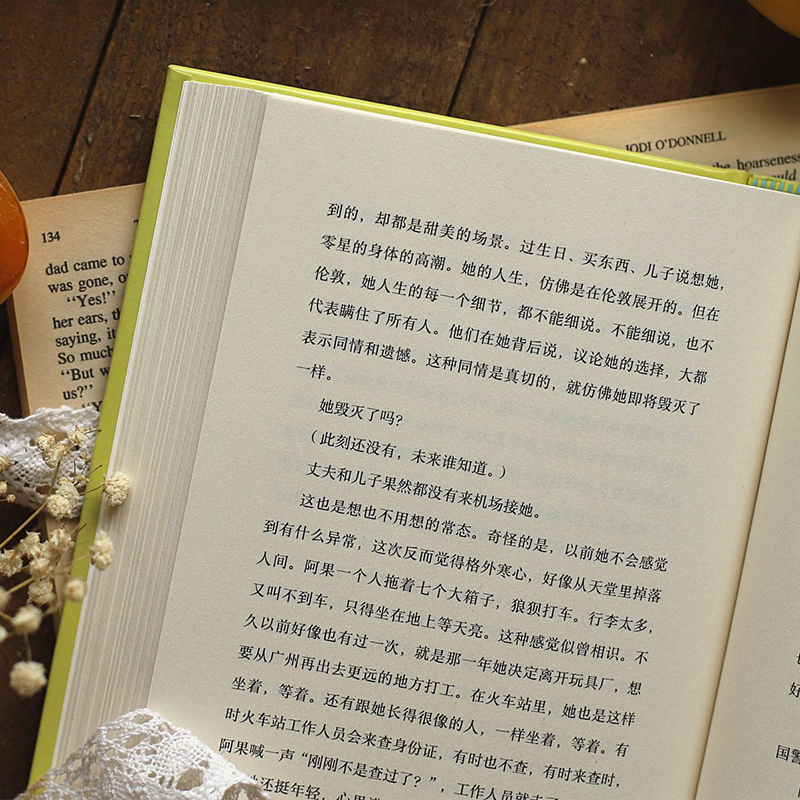 JODI O'DONNELL
the hoarseness
134
dad came to
was gone,
“Yes!”
her ears,
saying,
So much
“But
us?”
到的，却都是甜美的场景。过生日、买东西、儿子说想她，
零星的身体的高潮。她的人生，仿佛是在伦敦展开的。但在
伦敦，她人生的每一个细节，都不能细说。不能细说，也不
代表瞒住了所有人。他们在她背后说，议论她的选择，大都
表示同情和遗憾。这种同情是真切的，就仿佛她即将毁灭了
一样。
她毁灭了吗？
（此刻还没有，未来谁知道。）
丈夫和儿子果然都没有来机场接她。
这也是想也不用想的常态。奇怪的是，以前她不会感觉
到有什么异常，这次反而觉得格外寒心，好像从天堂里掉落
人间。阿果一个人拖着七个大箱子，狼狈打车。行李太多，
又叫不到车，只得坐在地上等天亮。这种感觉似曾相识。不
久以前好像也有过一次，就是那一年她决定离开玩具厂，想
要从广州再出去更远的地方打工。在火车站里，她也是这样
坐着，等着。还有跟她长得很像的人，一样坐着，等着。有
时火车站工作人员会来查身份证，有时也不查，有时来查时，
阿果喊一声“刚刚不是查过了？”，工作人员就去了
还挺年轻，心里
好
国警